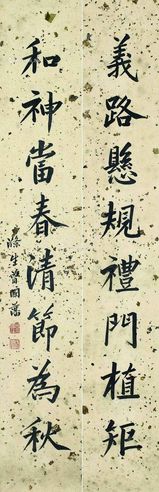 義路懸規禮門植矩
和神當春清節為秋
滌生曾國藩